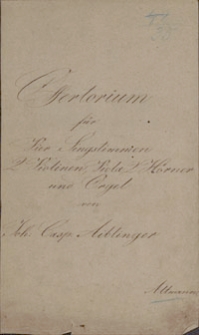 Offertorium
für
Vier Singstimmen
2 Violinen, Viola, 2 Hörner
und Orgel
von
Joh. Casp. Aiblinger